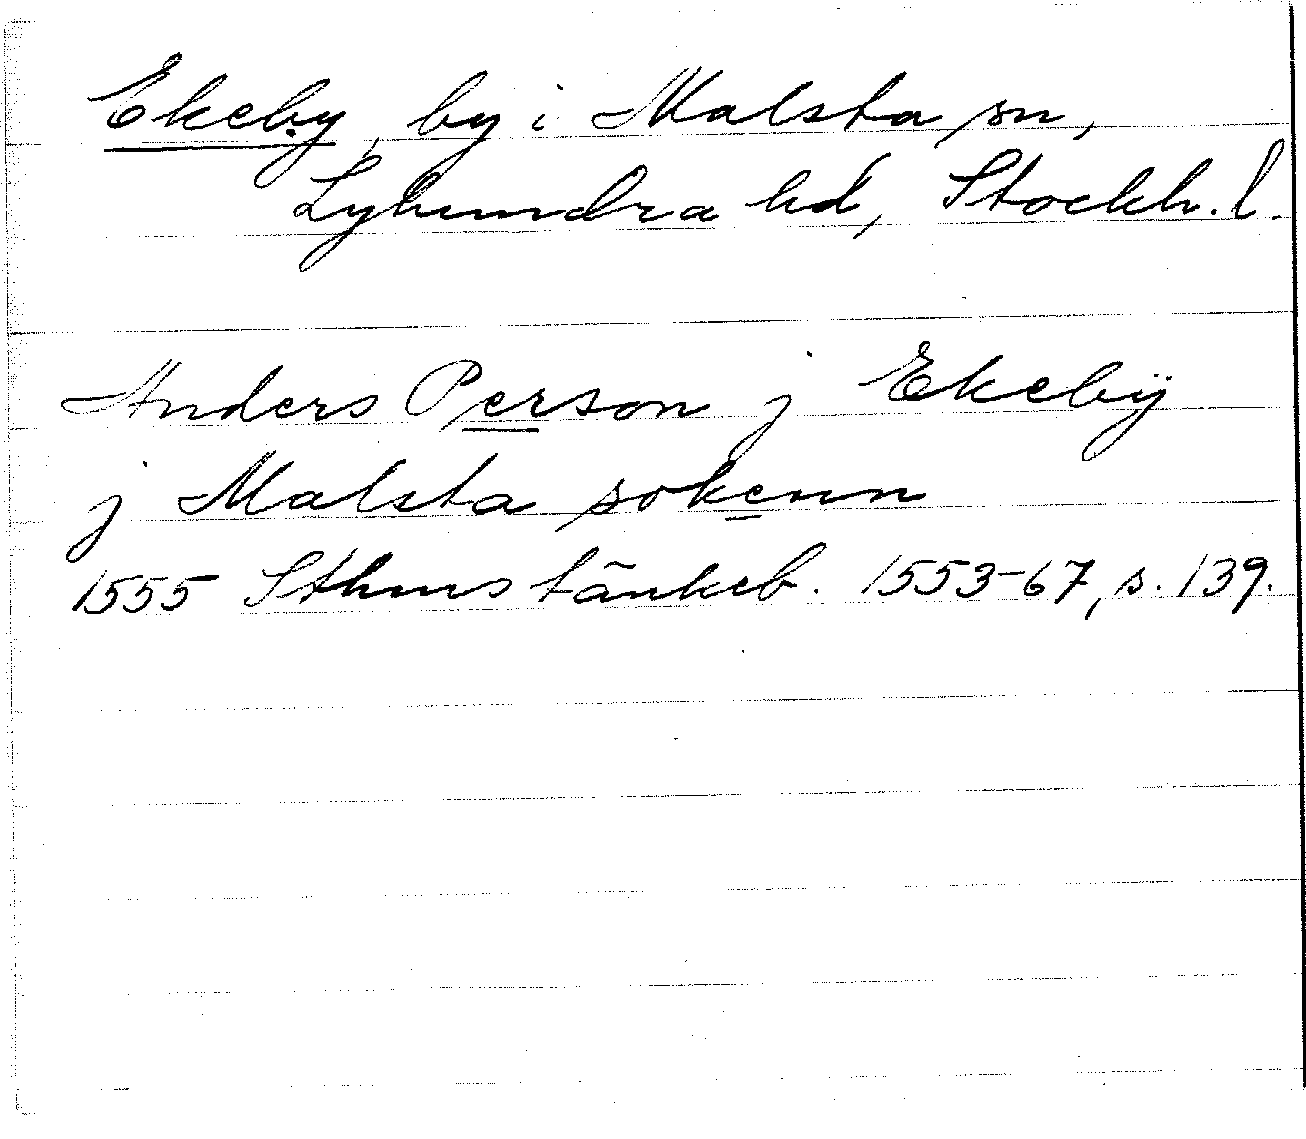 Ekeby, by i Malsta sn,
Lyhundra hd, Stockh. l.
Anders Person j Ekebÿ
j Malsta sokenn
1555 Sthms tänkeb. 1553-67, s. 139.